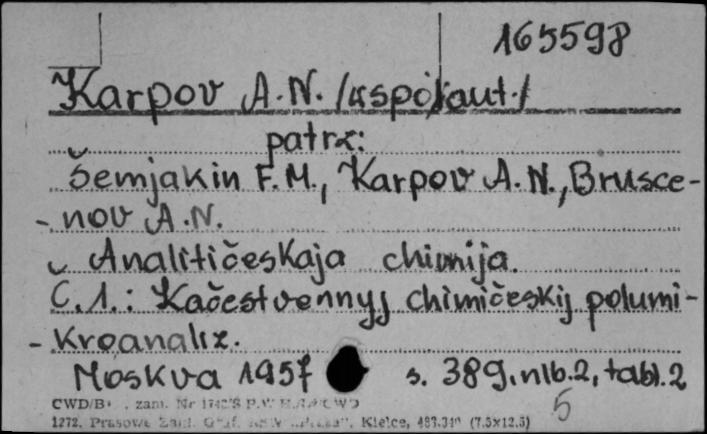 165598
Karpov A.N. /współaut./
patrz:
Šemjakin F.M., Karpov A.N., Brusce-
-nov A.N.
Analitičeskaja chimija.
C.1.: Kačestvennyj chimičeskij polumi-
-kroanaliz.
Moskva 1957 s. 389, nlb. 2, tabl. 2
CWD/B zam. Nr
5
1272. Prasowe Zakł. Graf. RSW „Prasa”, Kielce, (7.5x12.5)